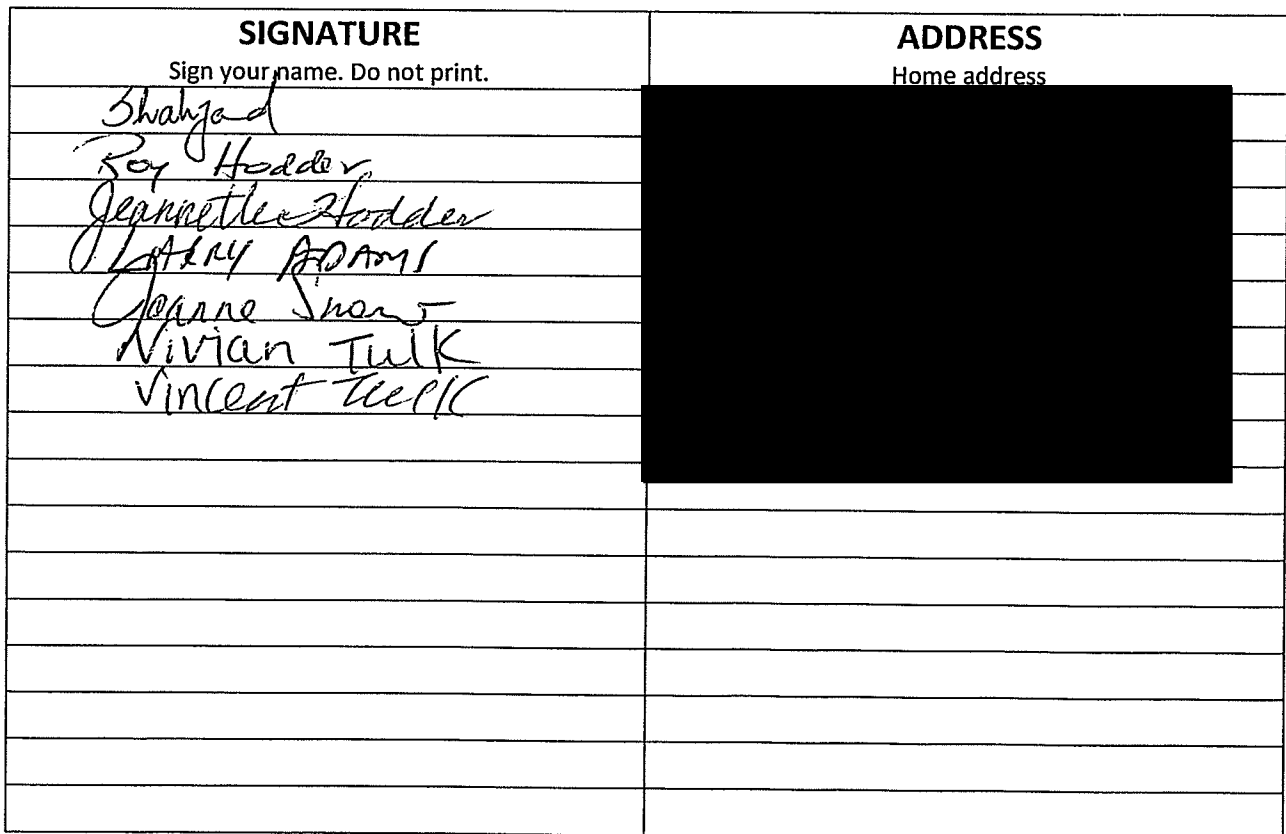 SIGNATURE
Sign your name. Do not print.
ADDRESS
Home address
Shahzad
Roy Hodder
Jeannette Hodder
LARRY ADAMS
Joanne Snow
Vivian Tulk
Vincent Tulk